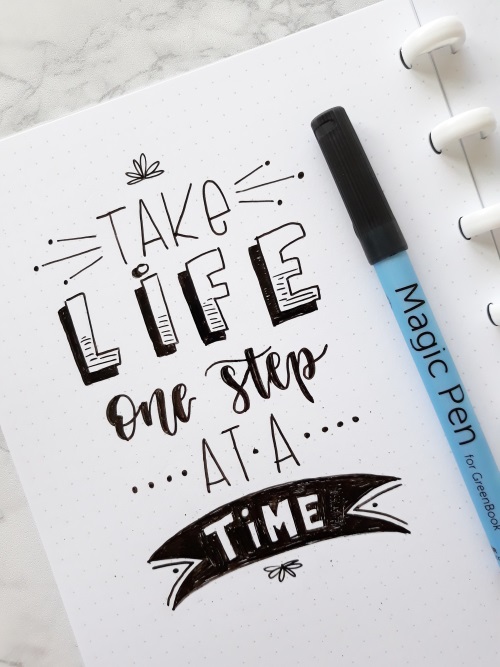 TAKE
LiFE
one step
AT·A
TiME
Magic Pen
for GreenBook